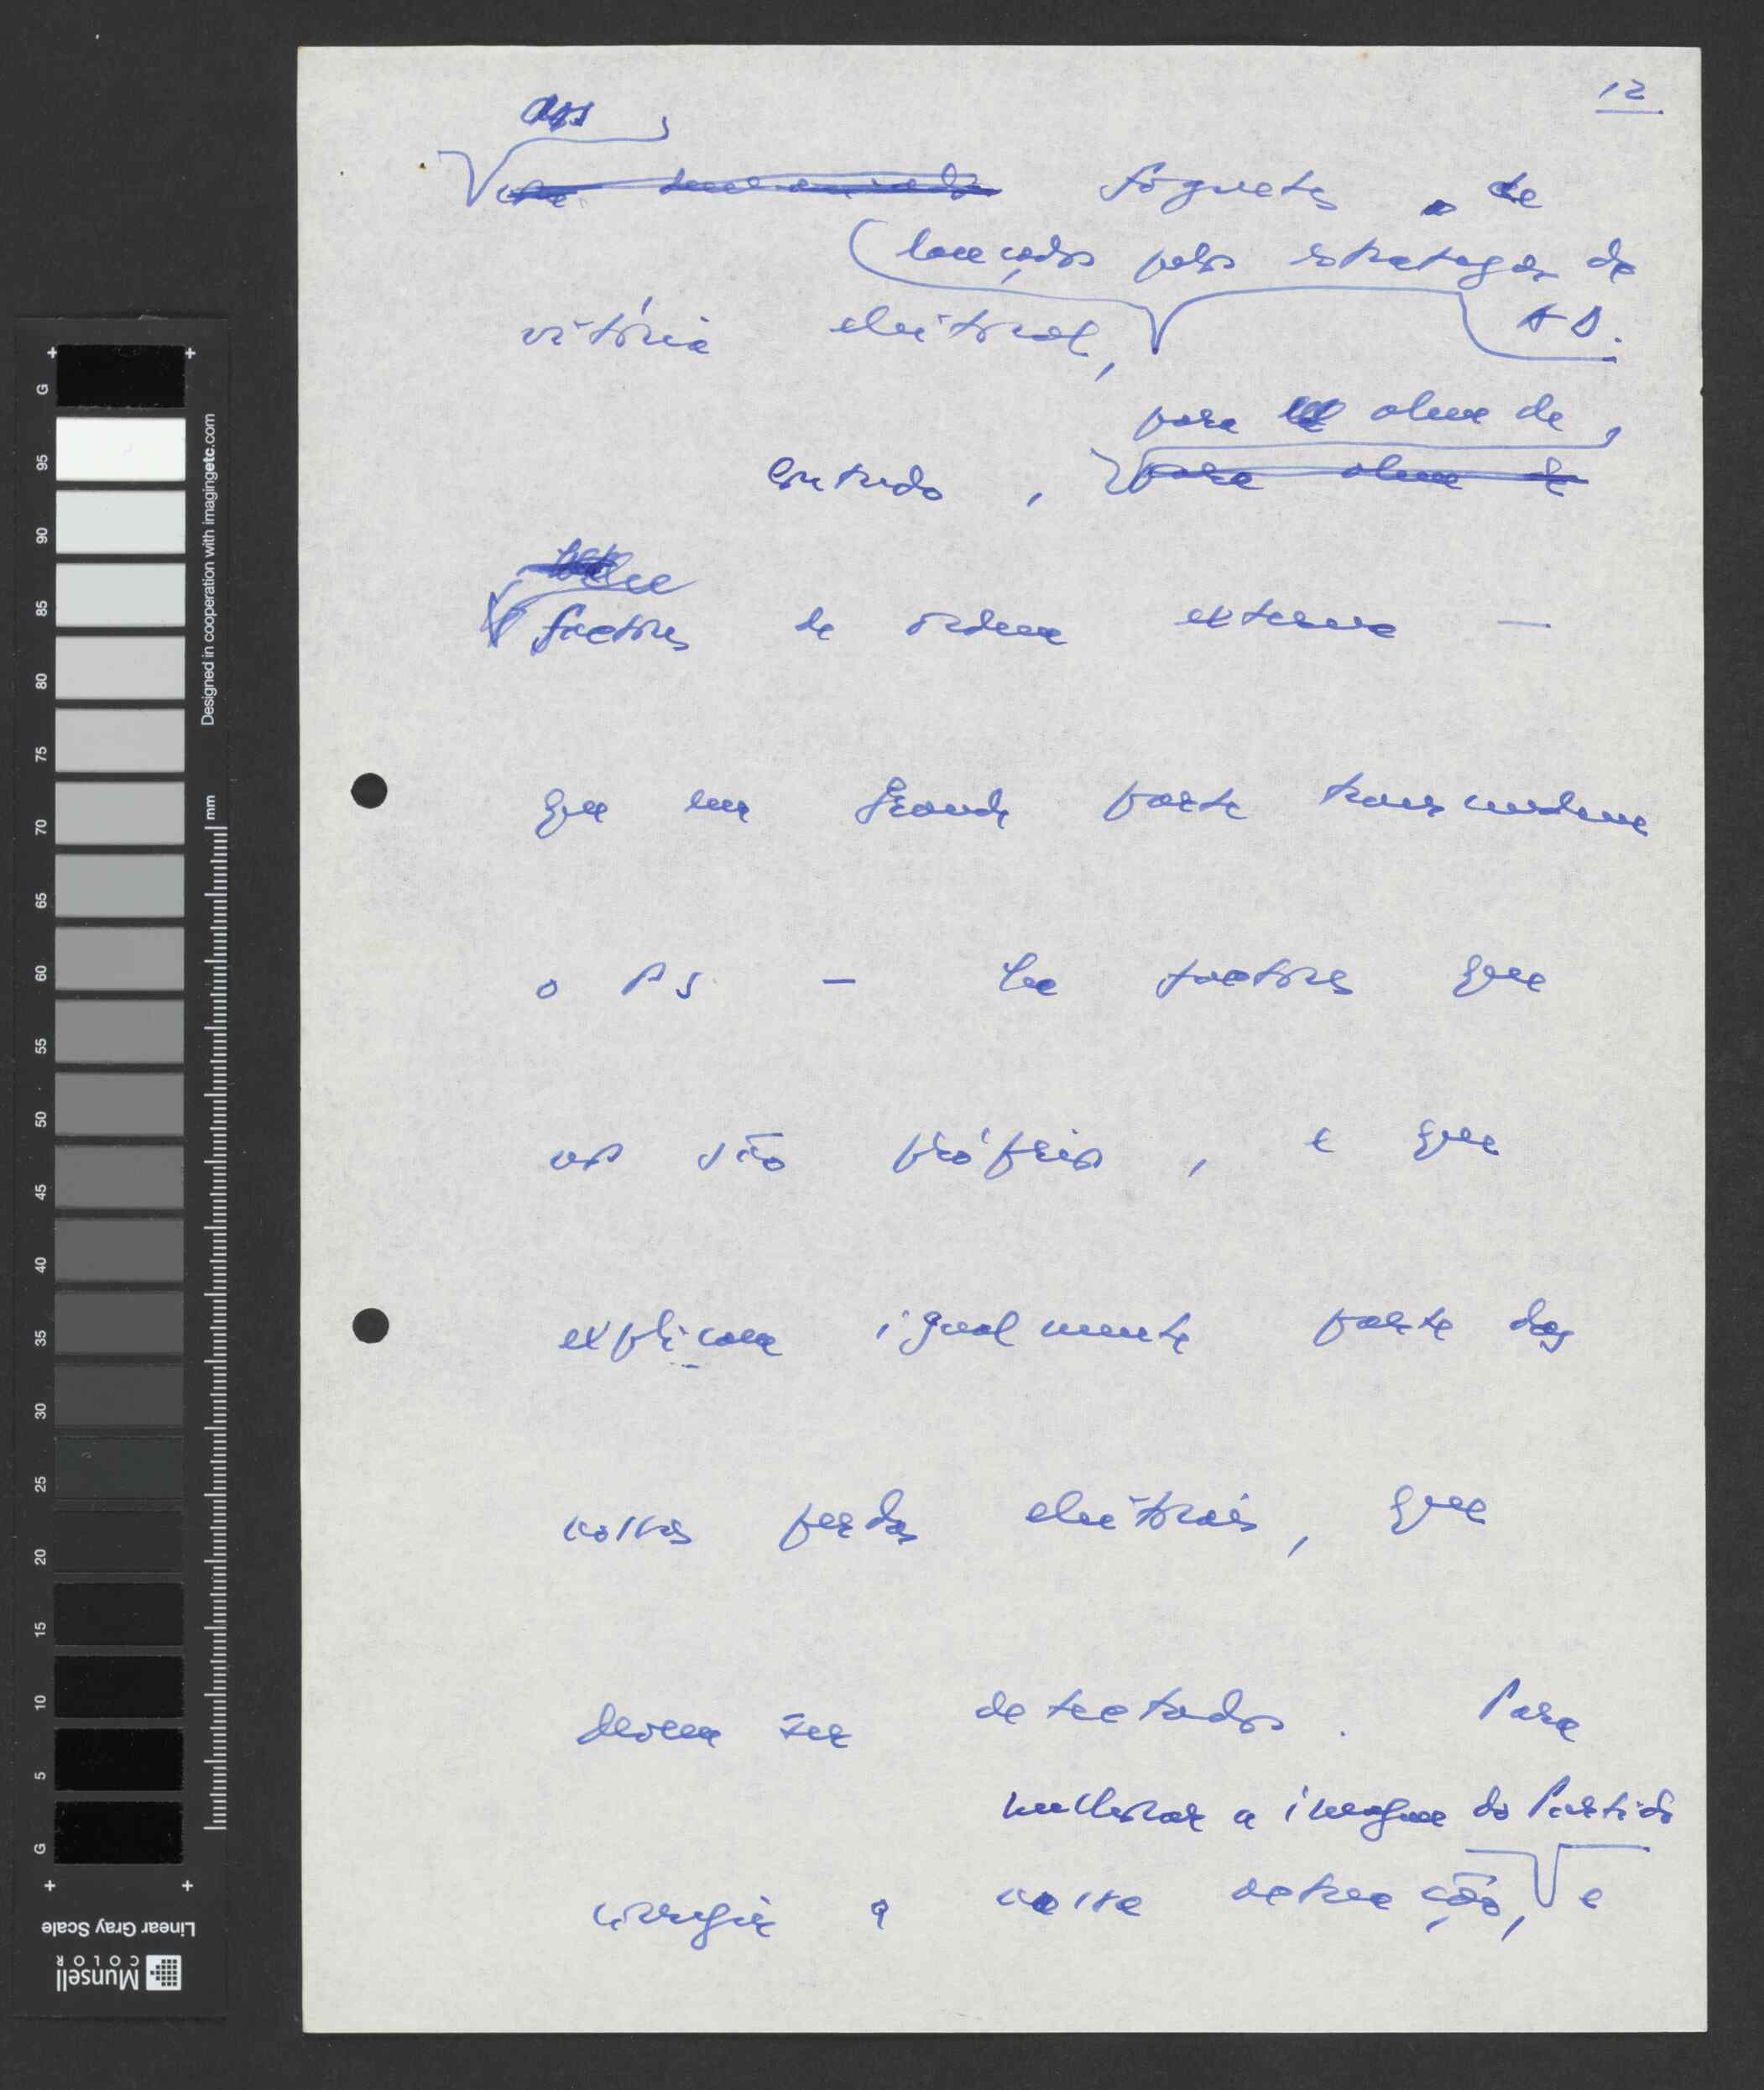 12
dos
foguetes de
lançados pelos estrategas da
vitória eleitoral,
AD.
para além de
Contudo, para além de
factores de ordem externa —
que em grande parte transcendem
o PS — há factores que
nos são próprios, e que
explicam igualmente parte das
nossas perdas eleitorais, que
devem ser detectados. Para
melhorar a imagem do Partido
corrigir a nossa actuação, e
G
95
90
85
80
75
70
65
60
55
50
45
40
35
30
25
20
15
10
5
G
Designed in cooperation with imagingetc.com
mm
Linear Gray Scale
Munsell
COLOR